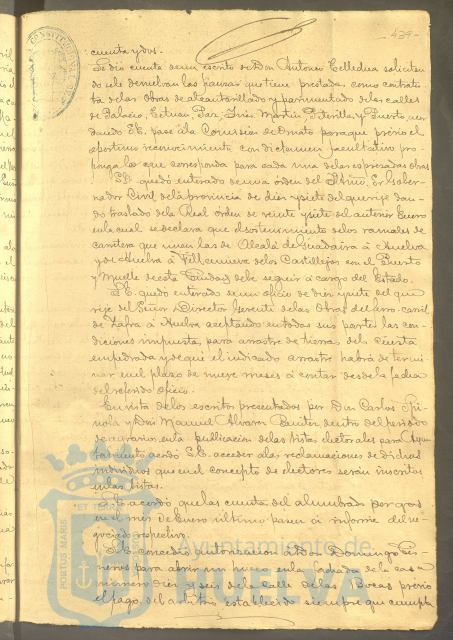 439
cuenta y dos.
Se dió cuenta de un escrito de Don Antonio Telledua solicitan
do se le devuelvan las fianzas que tiene prestadas como contratis
ta de las obras de alcantarillado y pavimentado de las calles
de Palacio, Tetuan, Paz, Tres, Martin, y Puerto, acor
dando S.E. pase á la Comision de Ornato para que prévio el
oportuno reconocimiento con dictamen facultativo pro
ponga lo que corresponda para cada una de las espresadas obras
S.E. quedó enterado de una órden del Iltmo. Sr. Gober
nador Civil de la provincia de diez y siete del que rije dan
do traslado de la Real órden de veinte y siete del anterior Enero
en la cual se declara que el sostenimiento de los ramales de
carretera que unen las de Alcalá de Guadaira á Huelva
y de Huelva á Villanueva de los Castillejos con el Puerto
y Muelle de esta Ciudad debe seguir á cargo del Estado.
S.E. quedó enterado de un oficio de diez y siete del que
rije del Señor Director Gerente de las Obras del ferro-carril
de Zafra á Huelva aceptando en todas sus partes las con
diciones impuestas para arrastre de tierras del Cuesta
empedrada y de que el indicado arrastre habrá de termi
nar en el plazo de nueve meses á contar desde la fecha
del referido oficio.
En vista de los escritos presentados por Don Carlos Spi
nola y Don Manuel Alvarez dentro del periodo
de en la publicacion de las listas electorales para Ayun
tamiento acordó S.E. acceder á las reclamaciones de dichos
individuos que en el concepto de electores serán inscritos
en las listas.
Se acordó que las cuentas del alumbrado por gas
en el mes de Enero último pasen á informe del ne
gociado respectivo.
Se concedió autorizacion á Don Domingo Cis
neros para abrir un hueco en la fachada de la casa
número diez y seis de la calle de las Bocas prévio
el pago del arbitrio establecido siempre que cumpla
PORTUS MARIS
ET TERRE
Ayuntamiento de
HUELVA